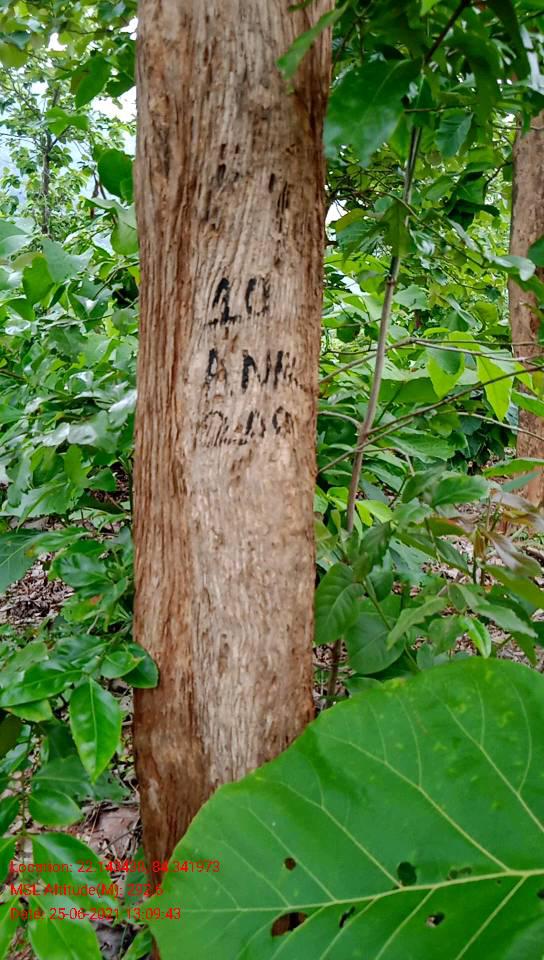 10
Location: 22.143436, 84.341973
MSL Altitude(M): 292.5
Date: 25-06-2021 13:09:43